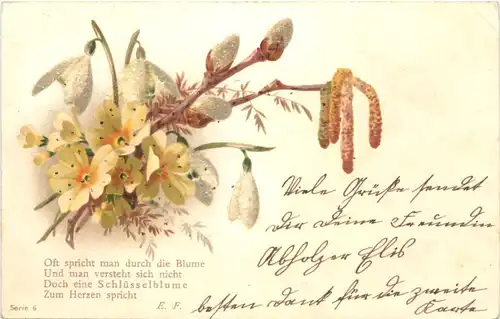 Oft spricht man durch die Blume
Und man versteht sich nicht
Doch eine Schlüsselblume
Zum Herzen spricht
E. F.
Serie 6
Viele Grüße sendet
Dir Deine Freundin
Abholzer Elis
besten Dank für die zweite
Karte